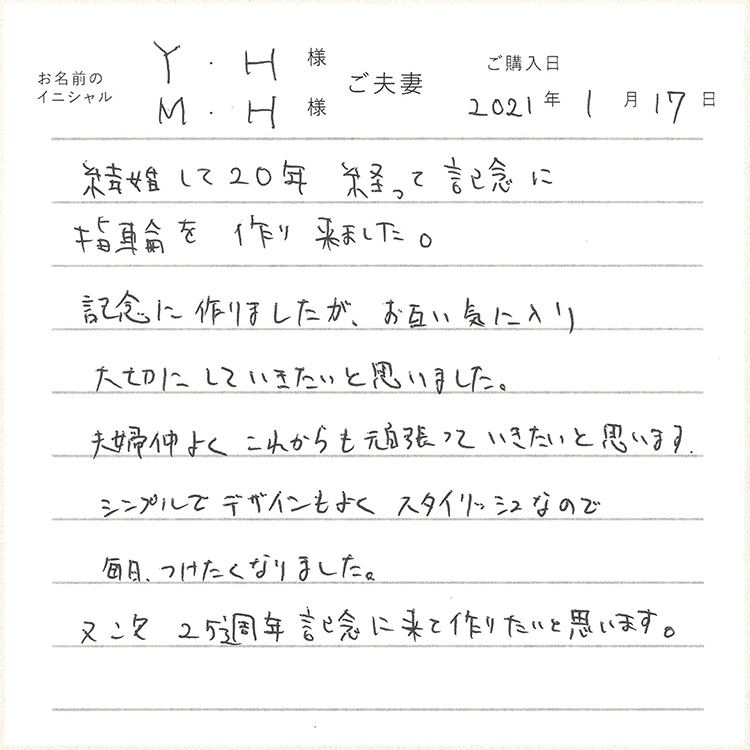 お名前の
イニシャル
Y・H 様
M・H 様
ご夫妻
ご購入日
2021年 1月 17日
結婚して20年 経って 記念に
指輪を 作り 来ました。
記念に 作りましたが、お互い気に入り
大切にしていきたいと思いました。
夫婦仲よく これからも 頑張って いきたいと思います.
シンプルで デザインもよく スタイリッシュなので
毎日、つけたくなりました。
又 25周年 記念に来て作りたいと思います。